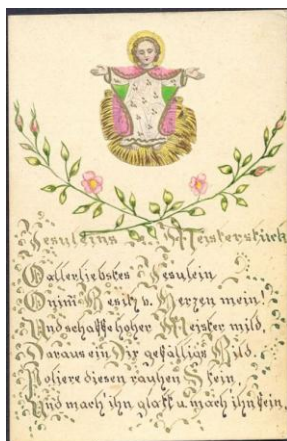 Jesuleins Meisterstück
O allerliebstes Jesulein
O nim Besitz v. Herzen mein!
Und schaffe hoher Meister mild,
Daraus ein Dir gefällig Bild.
Poliere diesen rauhen Stein,
Und mach' ihn glatt u. mach ihn fein.